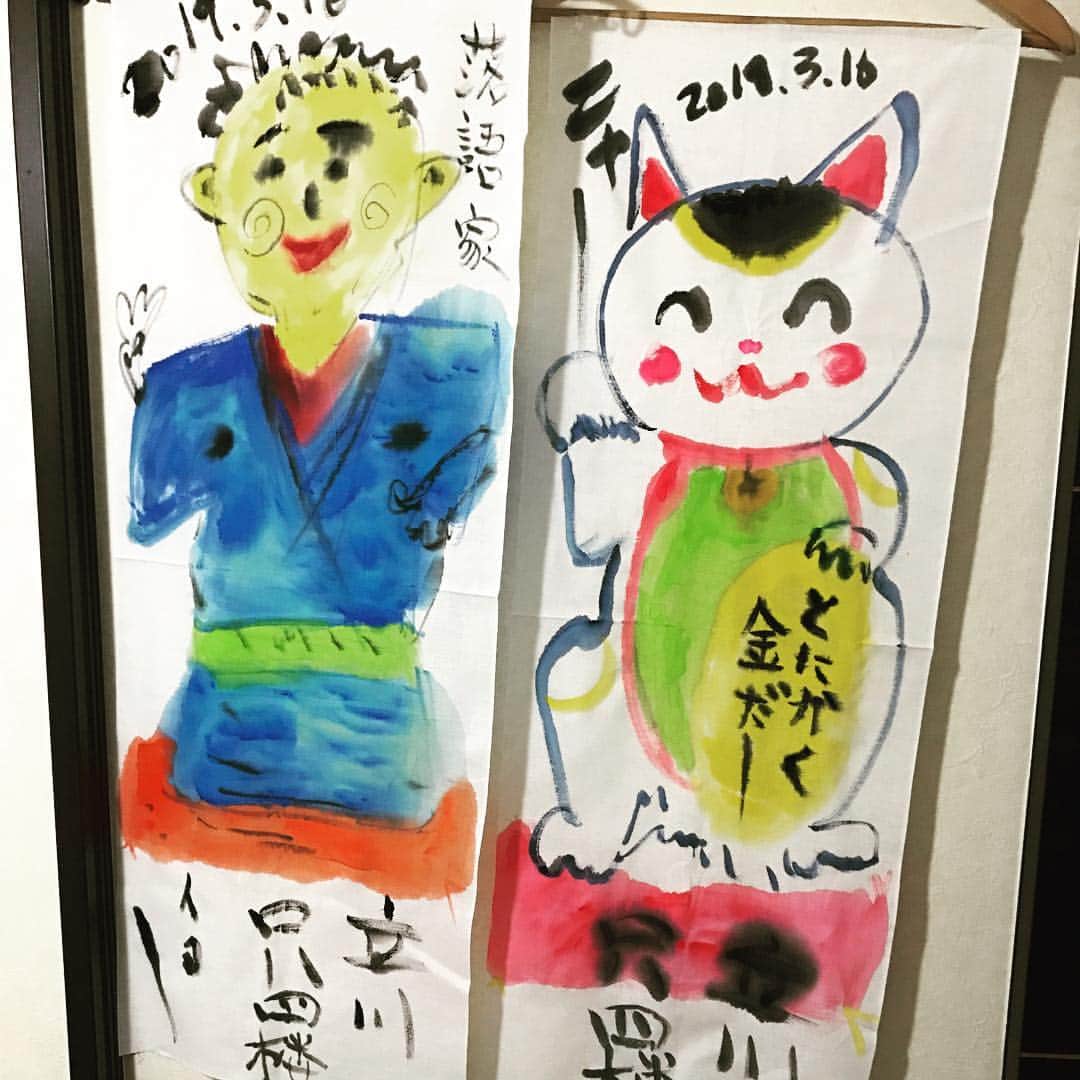 2019.3.16
落語家
立川
只四楼
イヨー
2019.3.16
ニャー
とにかく
金だー
立川
只四